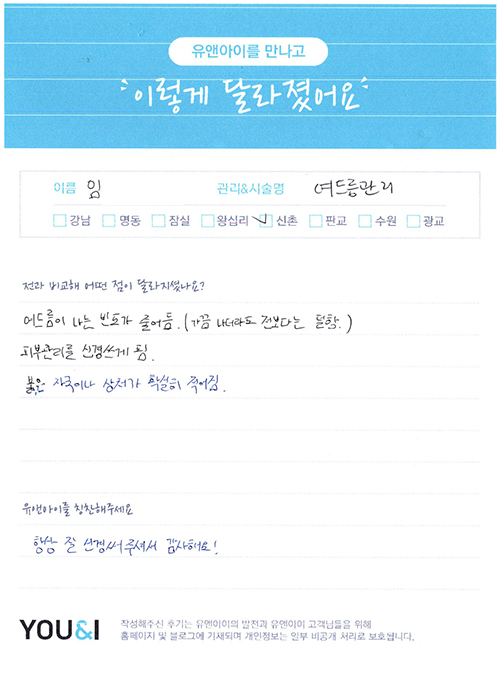 유앤아이를 만나고
이렇게 달라졌어요
이름 임 관리&시술명 여드름관리
강남 명동 잠실 왕십리 신촌 판교 수원 광교
전과 비교해 어떤 점이 달라지셨나요?
여드름이 나는 빈도가 줄어듬. (가끔 나더라도 전보다는 덜함.)
피부관리를 신경쓰게 됨.
붉은 자국이나 상처가 확실히 적어짐.
유앤아이를 칭찬해주세요
항상 잘 신경써주셔서 감사해요!
YOU&I 작성해주신 후기는 유앤아이의 발전과 유앤아이 고객님들을 위해
홈페이지 및 블로그에 기재되며 개인정보는 일부 비공개 처리로 보호됩니다.